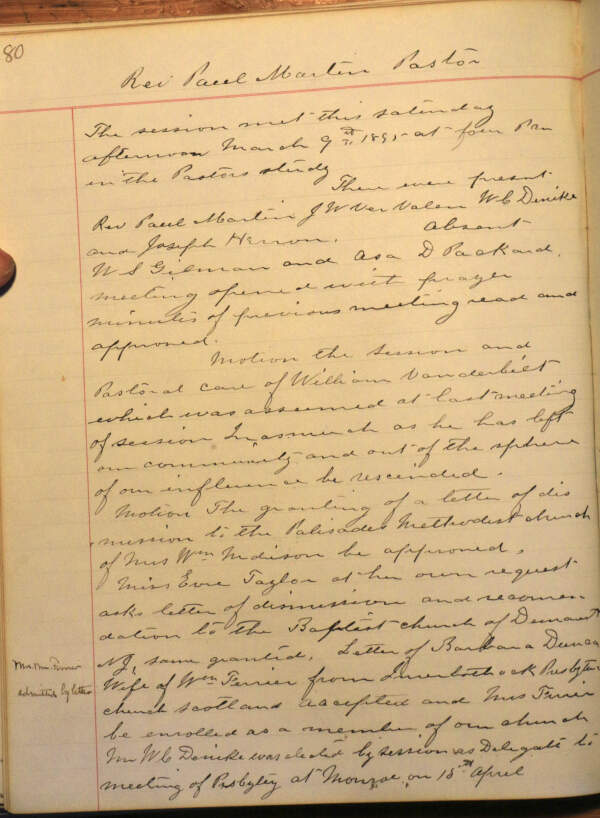 80
Rev Paul Martin Pastor
The session met this saturday
afternoon March 9th 1895 at four Pm
in the Pastors study
There were present
Rev Paul Martin J W Van Valen W C Denike
and Joseph Herron. Absent
W S Gilman and Asa D Packard.
meeting opened with prayer
minutes of previous meeting read and
approved.
Motion the session and
Pastoral care of William Vanderbilt
which was assumed at last meeting
of session Inasmuch as he has left
our community and out of the sphere
of our influence be rescinded.
Motion The granting of a letter of dis
mission to the Palisades Methodist church
of Mrs Wm Mdison be approved.
Miss Taylor at her own request
asks letter of dismission and recomen
dation to the Baptist church of Demarest
NJ, same granted. Letter of Barbara Duncan
Wife of Wm Ferrier from Presbyterian
church scotland accepted and Mrs Ferrier
be enrolled as a member of our church
Mr W C Denike was elected by session as Delegate to
meeting of Presbytey at Monroe on 15th April
Mrs Wm Ferrier
admitted by letter